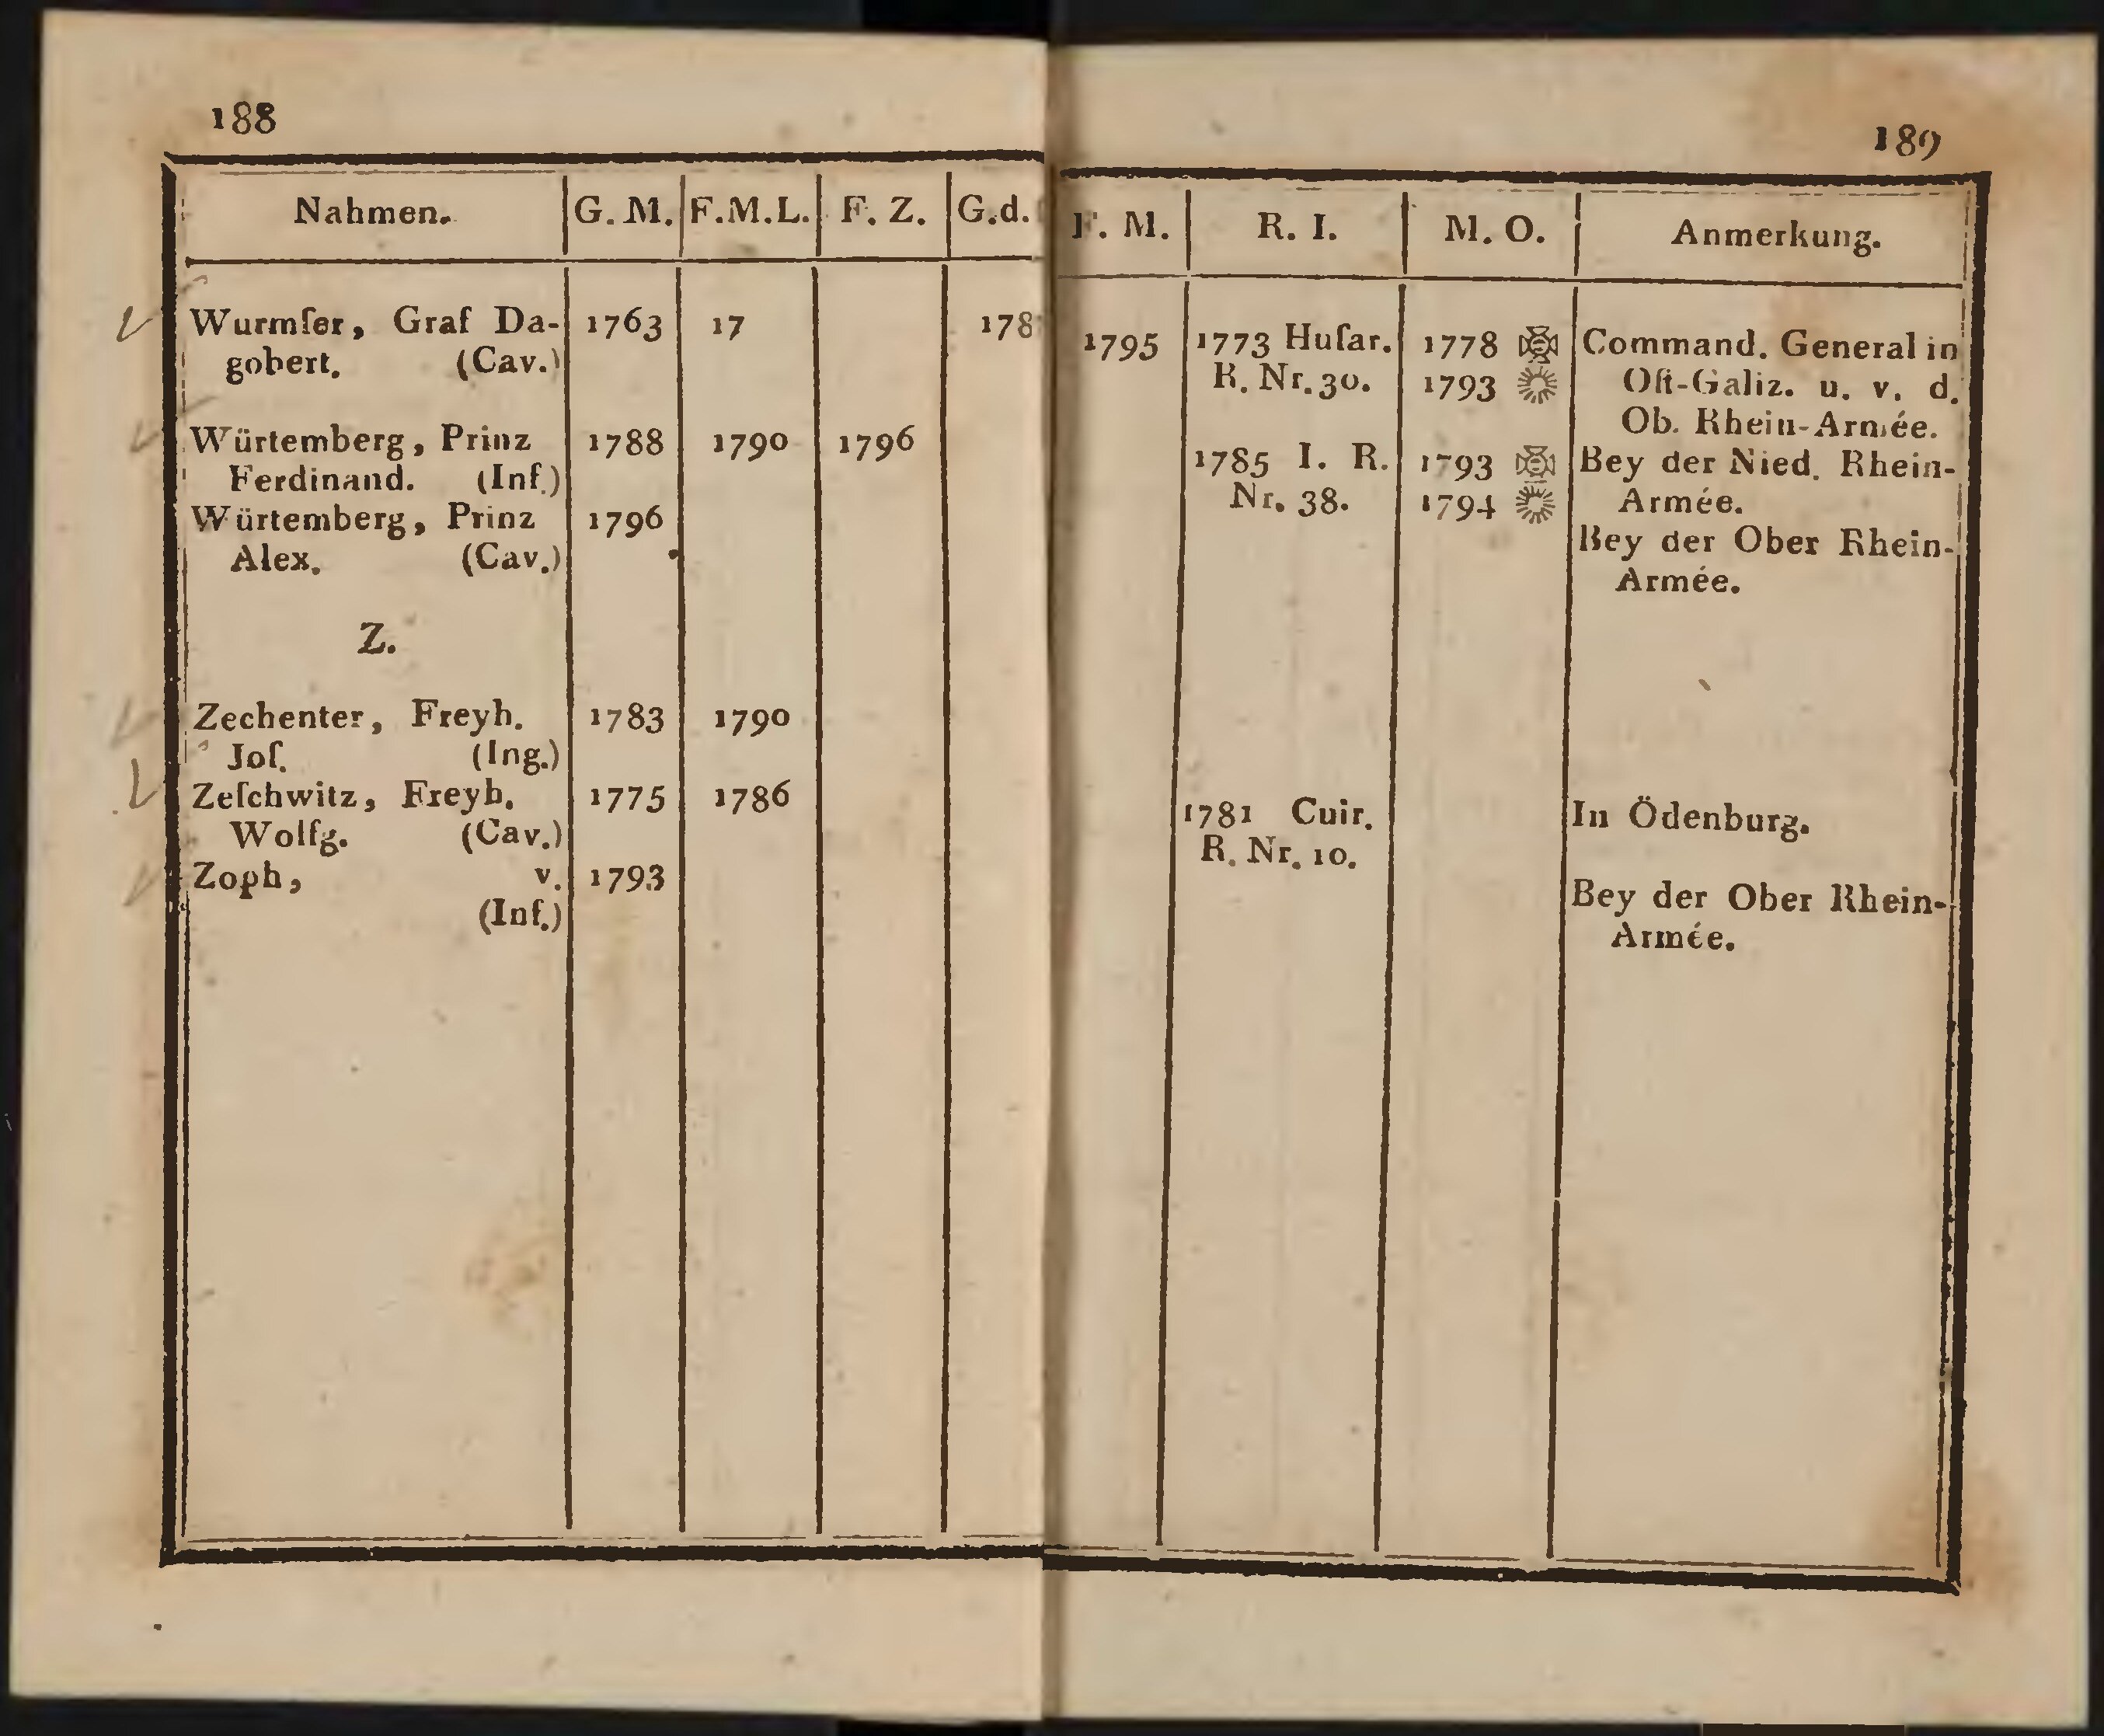 188
Nahmen. G. M. F.M.L. F. Z. G.d.
Wurmſer, Graf Da- 1763 17 178
gobert. (Cav.)
Würtemberg, Prinz 1788 1790 1796
Ferdinand. (Inf.)
Würtemberg, Prinz 1796
Alex. (Cav.)
Z.
Zechenter, Freyh. 1783 1790
Joſ. (Ing.)
Zeſchwitz, Freyh. 1775 1786
Wolfg. (Cav.)
Zoph, v. 1793
(Inf.)
189
F. M. R. I. M. O. Anmerkung.
1795 1773 Huſar. 1778 Command. General in
R. Nr. 30. 1793 Oſt-Galiz. u. v. d.
Ob. Rhein-Armée.
1785 I. R. 1793 Bey der Nied. Rhein-
Nr. 38. 1794 Armée.
Bey der Ober Rhein-
Armée.
1781 Cuir. In Ödenburg.
R. Nr. 10.
Bey der Ober Rhein-
Armée.